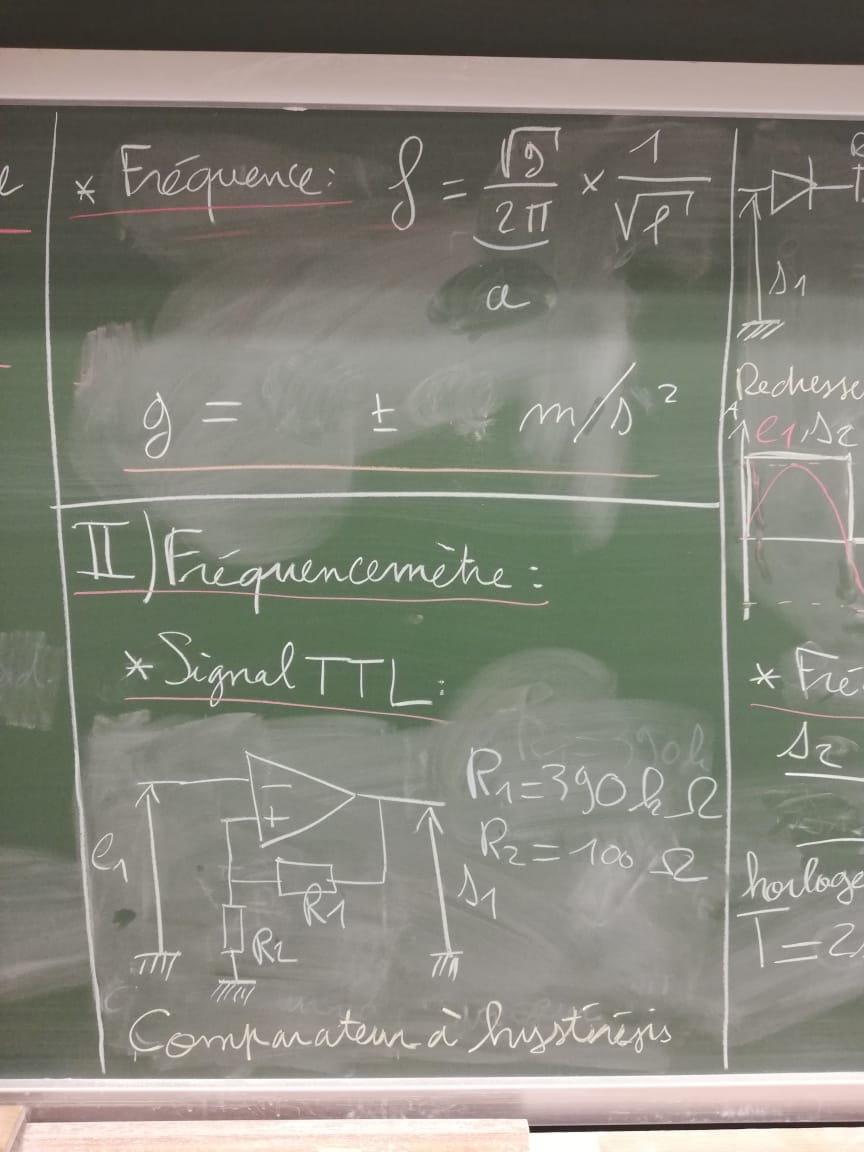 * Fréquence: f = √g / 2π × 1 / √l
a
g = ± m/s²
II) Fréquencemètre :
* Signal TTL :
− +
e1
R1 = 390 k Ω
R2 = 100 Ω
R1
R2
s1
Comparateur à hystérésis
s1
Redresse
e1, s2
* Fré
s2
horloge
T = 2